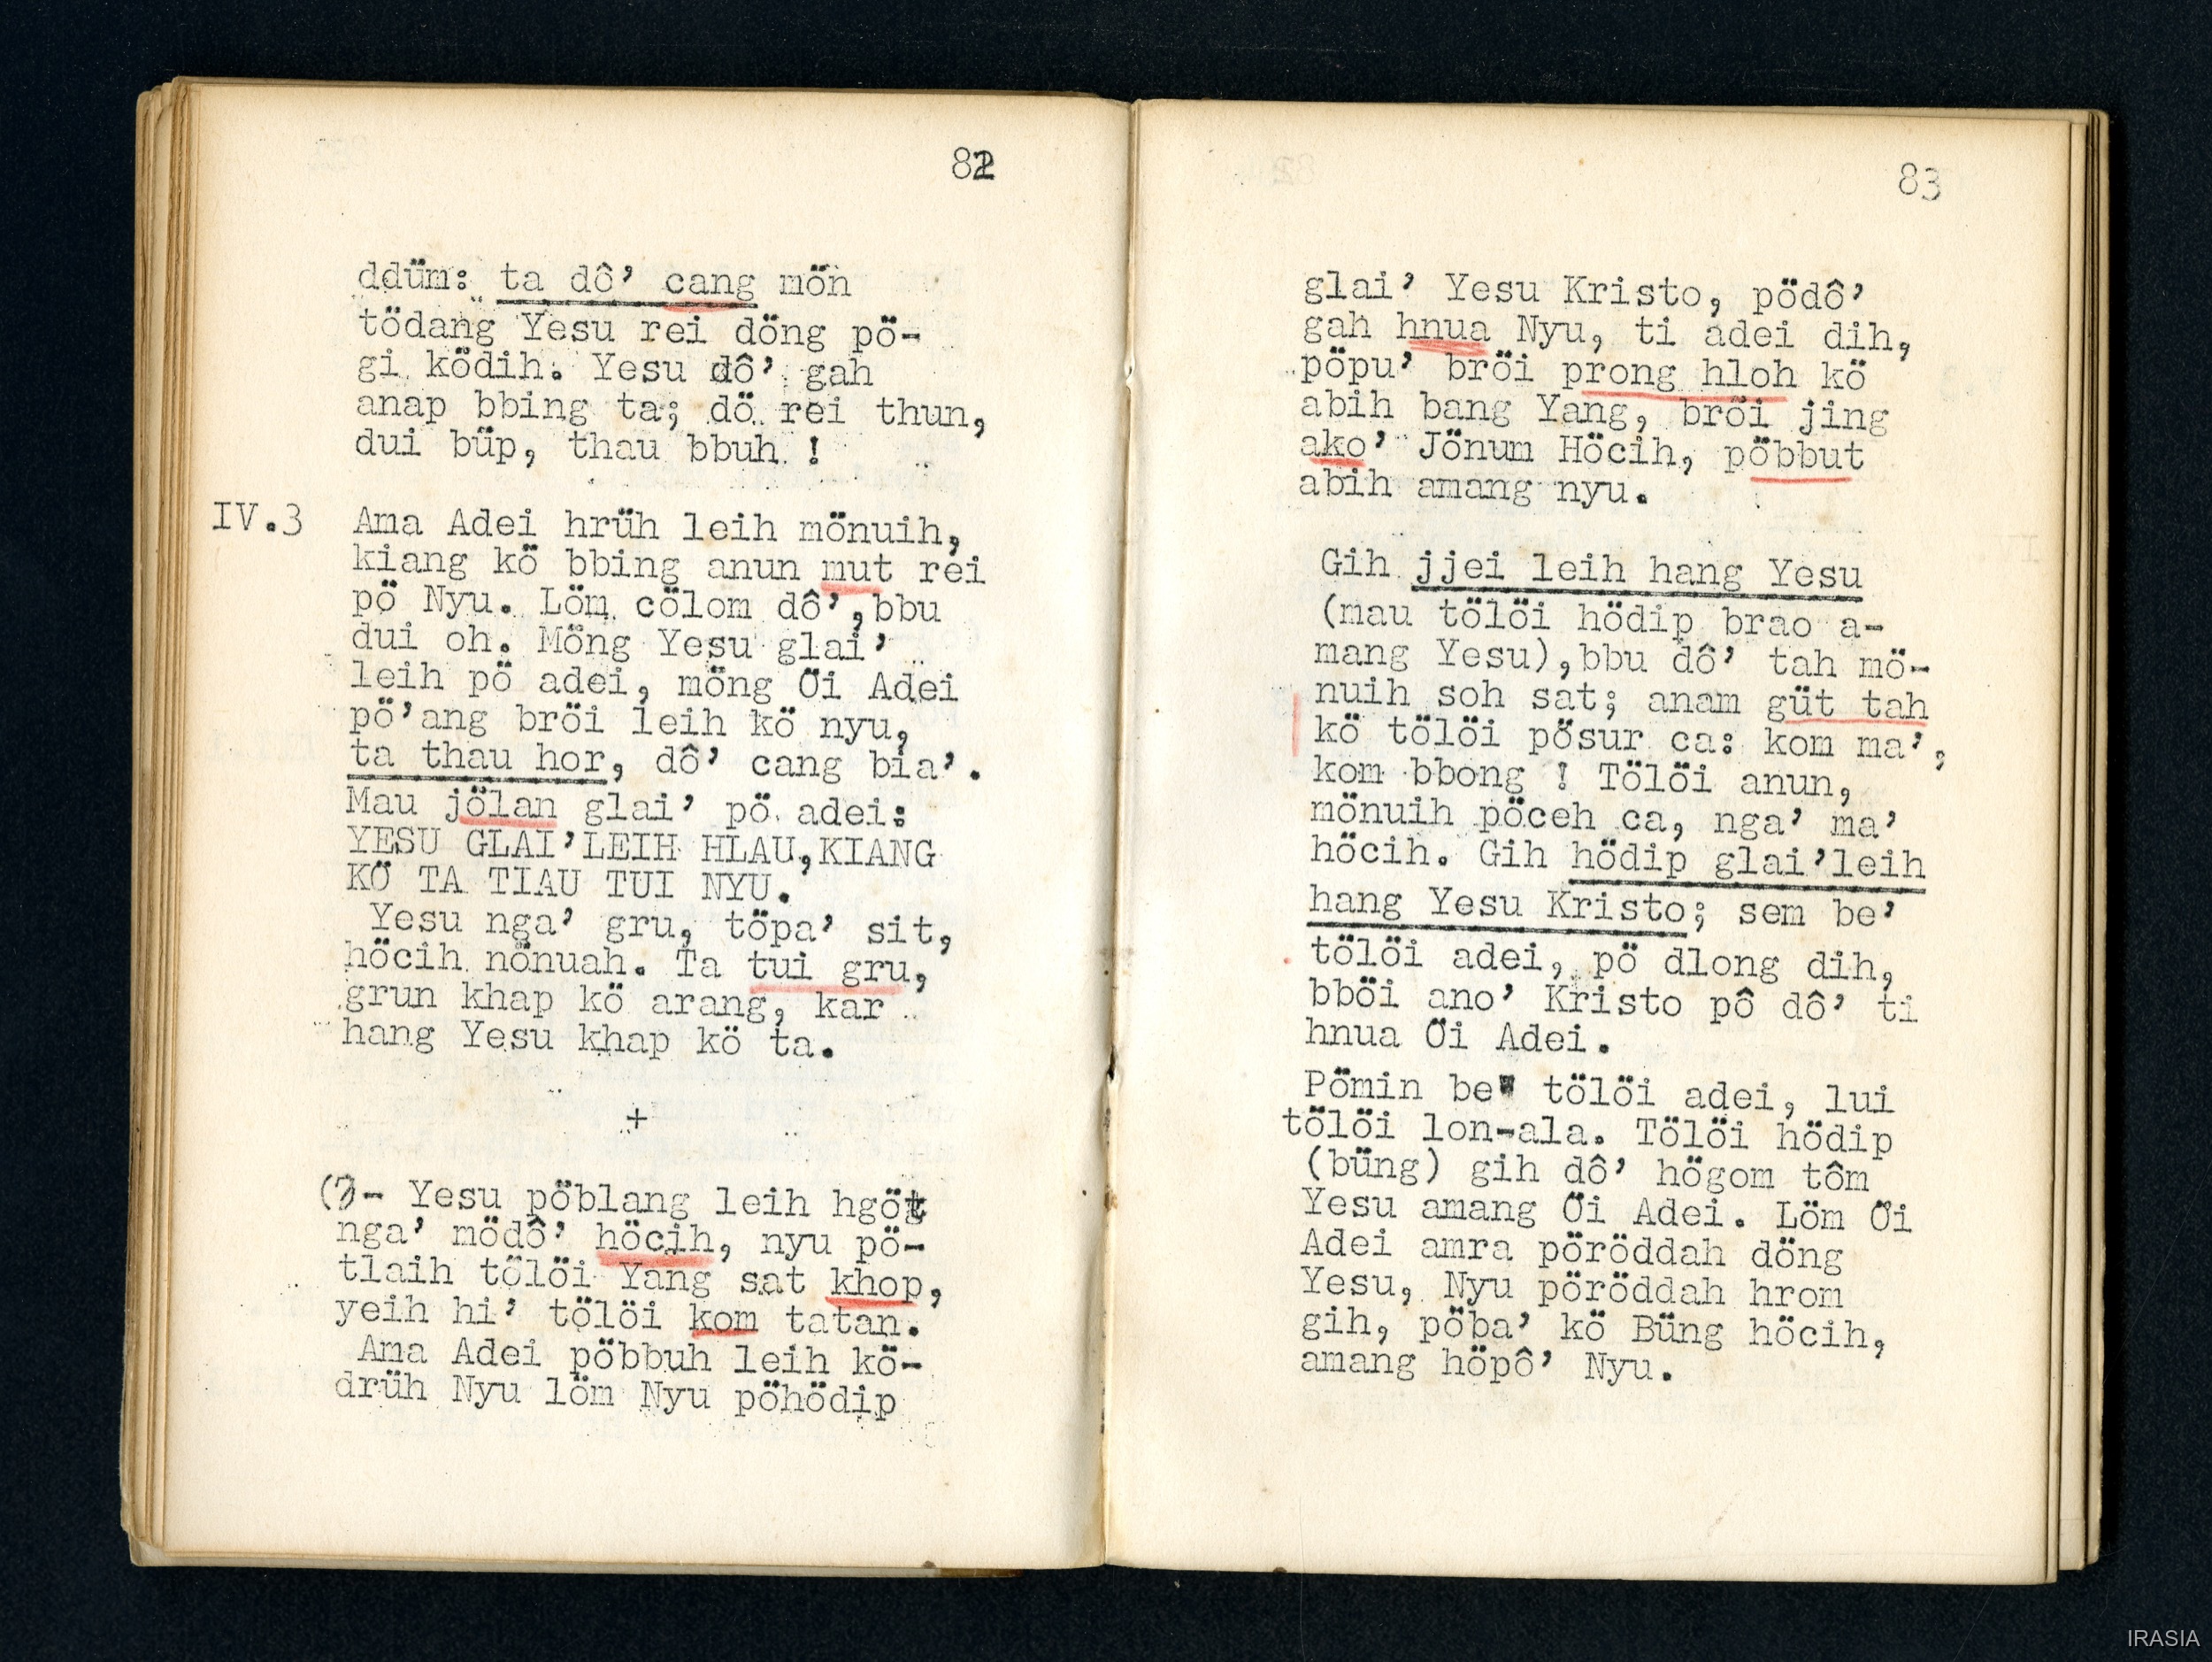 82
ddüm: ta dô’ cang mön
tödang Yesu rei döng pö-
gi ködih. Yesu dô’ gah
anap bbing ta; dö rei thun,
dui büp, thau bbuh !
IV.3 Ama Adei hrüh leih mönuih,
kiang kö bbing anun mut rei
pö Nyu. Löm cölom dô’,bbu
dui oh. Möng Yesu glai’
leih pö adei, möng Öi Adei
pö’ang bröi leih kö nyu,
ta thau hor, dô’ cang bia’.
Mau jölan glai’ pö adei:
YESU GLAI’LEIH HLAU,KIANG
KÖ TA TIAU TUI NYU.
Yesu nga’ gru, töpa’ sit,
höcih nönuah. Ta tui gru,
grun khap kö arang, kar
hang Yesu khap kö ta.
+
(7)- Yesu pöblang leih hgöt
nga’ mödô’ höcih, nyu pö-
tlaih tölöi Yang sat khop,
yeih hi’ tölöi kom tatan.
Ama Adei pöbbuh leih kö-
drüh Nyu löm Nyu pöhödip
83
glai’ Yesu Kristo, pödô’
gah hnua Nyu, ti adei dih,
pöpu’ bröi prong hloh kö
abih bang Yang, bröi jing
ako’ Jönum Höcih, pöbbut
abih amang nyu.
Gih jjei leih hang Yesu
(mau tölöi hödip brao a-
mang Yesu),bbu dô’ tah mö-
nuih soh sat; anam güt tah
kö tölöi pösur ca: kom ma’,
kom bbong ! Tölöi anun,
mönuih pöceh ca, nga’ ma’
höcih. Gih hödip glai’leih
hang Yesu Kristo; sem be’
tölöi adei, pö dlong dih,
bböi ano’ Kristo pô dô’ ti
hnua Öi Adei.
Pömin be’ tölöi adei, lui
tölöi lon-ala. Tölöi hödip
(büng) gih dô’ högom tôm
Yesu amang Öi Adei. Löm Öi
Adei amra pöröddah döng
Yesu, Nyu pöröddah hrom
gih, pöba’ kö Büng höcih,
amang höpô’ Nyu.
IRASIA